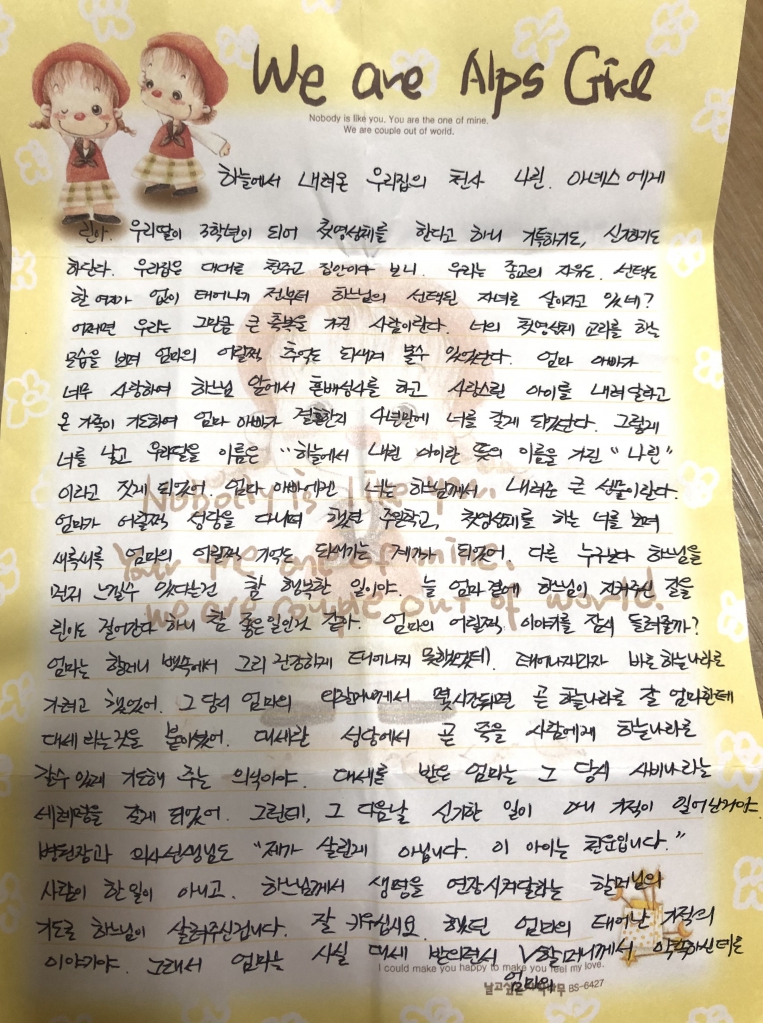 We are Alps Girl
Nobody is like you. You are the one of mine.
We are couple out of world.
하늘에서 내려온 우리집의 천사 나린. 아녜스에게
린아. 우리딸이 3학년이 되어 첫영성체를 한다고 하니 기특하기도, 신기하기도
하단다. 우리집은 대대로 천주교 집안이다 보니. 우리는 종교의 자유도. 선택도
할 여지가 없이 태어나기 전부터 하느님의 선택된 자녀로 살아가고 있네?
어쩌면 우리는 그만큼 큰 축복을 가진 사람이란다. 너의 첫영성체 교리를 하는
모습을 보며 엄마의 어릴적 추억도 되새겨 볼수 있었단다. 엄마 아빠가
너무 사랑하여 하느님 앞에서 혼배성사를 하고 사랑스런 아이를 내려달라고
온 가족이 기도하여 엄마 아빠가 결혼한지 4년만에 너를 갖게 되었단다. 그렇게
너를 낳고 우리딸을 이름은 "하늘에서 내린 아이란 뜻의 이름을 가진 "나린"
이라고 짓게 되었어 엄마 아빠에겐 너는 하느님께서 내려준 큰 선물이란다.
엄마가 어릴적 성당을 다니며 했던 주일학교, 첫영성체를 하는 너를 보며
새록새록 엄마의 어릴적 기억도 되새기는 계기가 되었어. 다른 누구보다 하느님을
먼저 느낄수 있다는건 참 행복한 일이야. 늘 엄마 곁에 하느님이 지켜주신 길을
린이도 걸어간다 하니 참 좋은일인것 같아. 엄마의 어릴적 이야기를 잠시 들려줄까?
엄마는 할머니 뱃속에서 그리 건강하게 태어나지 못했었대. 태어나자마자 바로 하늘나라로
가려고 했었어. 그 당시 엄마의 외할머니께서 몇시간되면 곧 하늘나라로 갈 엄마한테
대세라는것을 붙이셨어. 대세란 성당에서 곧 죽을 사람에게 하늘나라로
갈수 있게 기도해 주는 의식이야. 대세를 받은 엄마는 그 당시 사비나라는
세례명을 갖게 되었어. 그런데, 그 다음날 신기한 일이 아니 기적이 일어난거야.
병원장과 의사선생님도 "제가 살린게 아닙니다. 이 아이는 천운입니다."
사람이 한일이 아니고. 하느님께서 생명을 연장시켜달라는 할머님의
기도로 하느님이 살려주신겁니다. 잘 키우십시오 했던 엄마의 태어난 기적의
이야기야. 그래서 엄마는 사실 대세 받으면서 ∨할머니께서 약속하신대로
엄마의
I could make you happy to make you feel my love.
BS-6427
Nobody is like you.
You are the one of mine.
We are couple out of world.